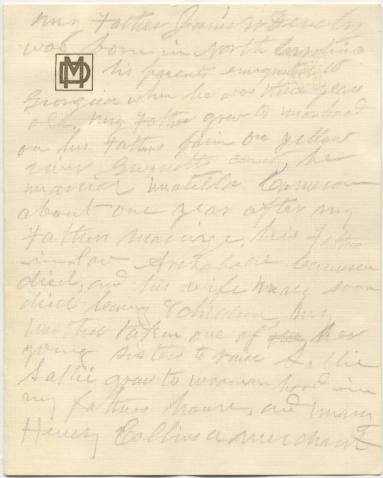 My Father James W Dently
was born in North Carolina
MD
his parents emigrated to
Georgia when he was three years
old My Father grew to manhood
on his Fathers farm on yellow
river Gwinett he
married Matilda Cameron
about one year after my
Fathers marriage, his Father
in law Cameron
died, and his wife Mary soon
died leaving 8 children, My
Mother taken one of her
young sisters to raise Sallie
Sallie grew to woman hood in
my fathers house, and marry
Henry Collins a merchant